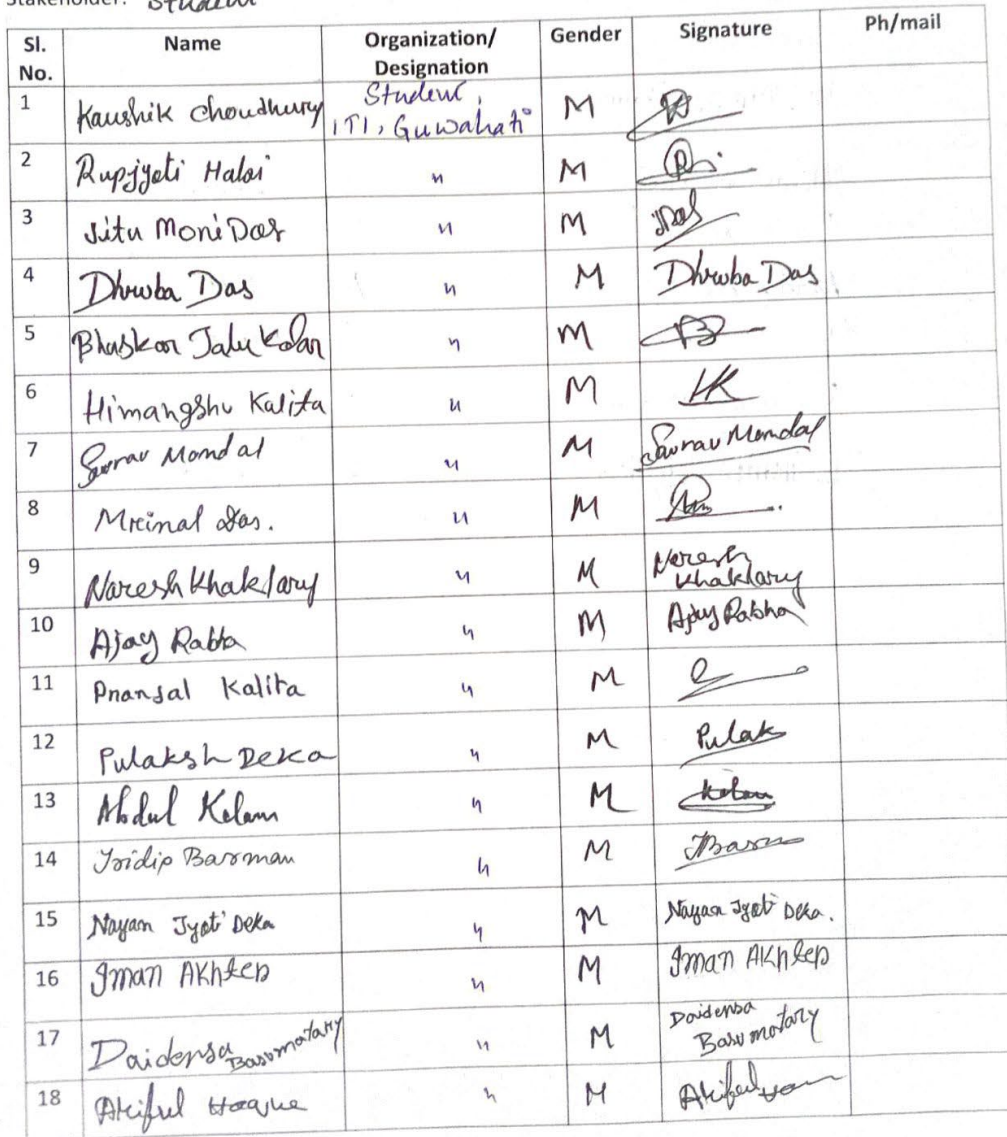 Stakeholder: Student
Sl. No. Name Organization/ Designation Gender Signature Ph/mail
1 Kaushik Choudhury Student, ITI, Guwahati M
2 Rupjyoti Haloi " M
3 Jitu Moni Das " M JDas
4 Dhruba Das " M Dhruba Das
5 Bhaskar Talukdar " M
6 Himangshu Kalita " M HK
7 Sourav Mondal " M Sourav Mondal
8 Mrinal Das. " M
9 Naresh Khaklary " M Naresh Khaklary
10 Ajoy Rabha " M Ajoy Rabha
11 Pranjal Kalita " M
12 Pulaksh Deka " M Pulak
13 Abdul Kalam " M Kalam
14 Tridip Barman " M TBarm
15 Nayan Jyoti Deka " M Nayan Jyoti Deka.
16 Iman Akhter " M Iman Akhter
17 Daidensa Basumatary " M Daidensa Basumotary
18 Akiful Hoque " M Akiful